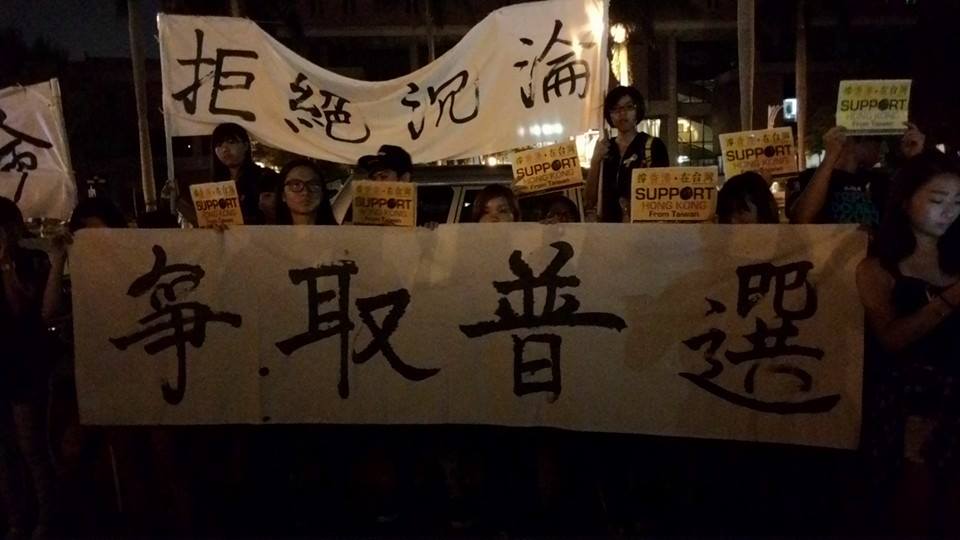 拒絕沉淪
撐香港・在台灣
SUPPORT
HONG KONG
From Taiwan
撐香港・在台灣
SUPPORT
HONG KONG
From Taiwan
撐香港・在台灣
SUPPORT
HONG KONG
From Taiwan
撐香港・在台灣
SUPPORT
HONG KONG
From Taiwan
撐香港・在台灣
SUPPORT
HONG KONG
From Taiwan
撐香港・在台灣
SUPPORT
HONG KONG
From Taiwan
爭取普選